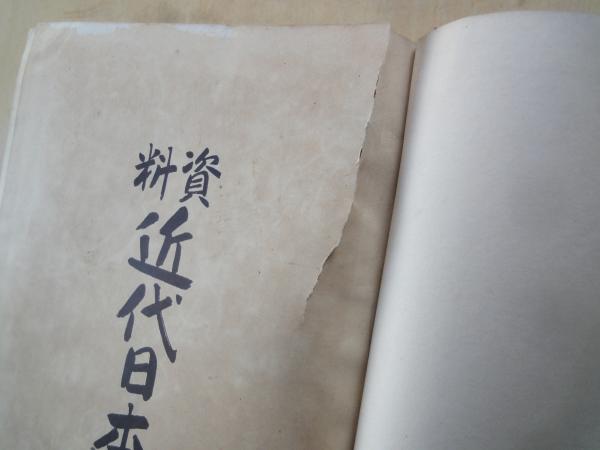 資料
近代日本